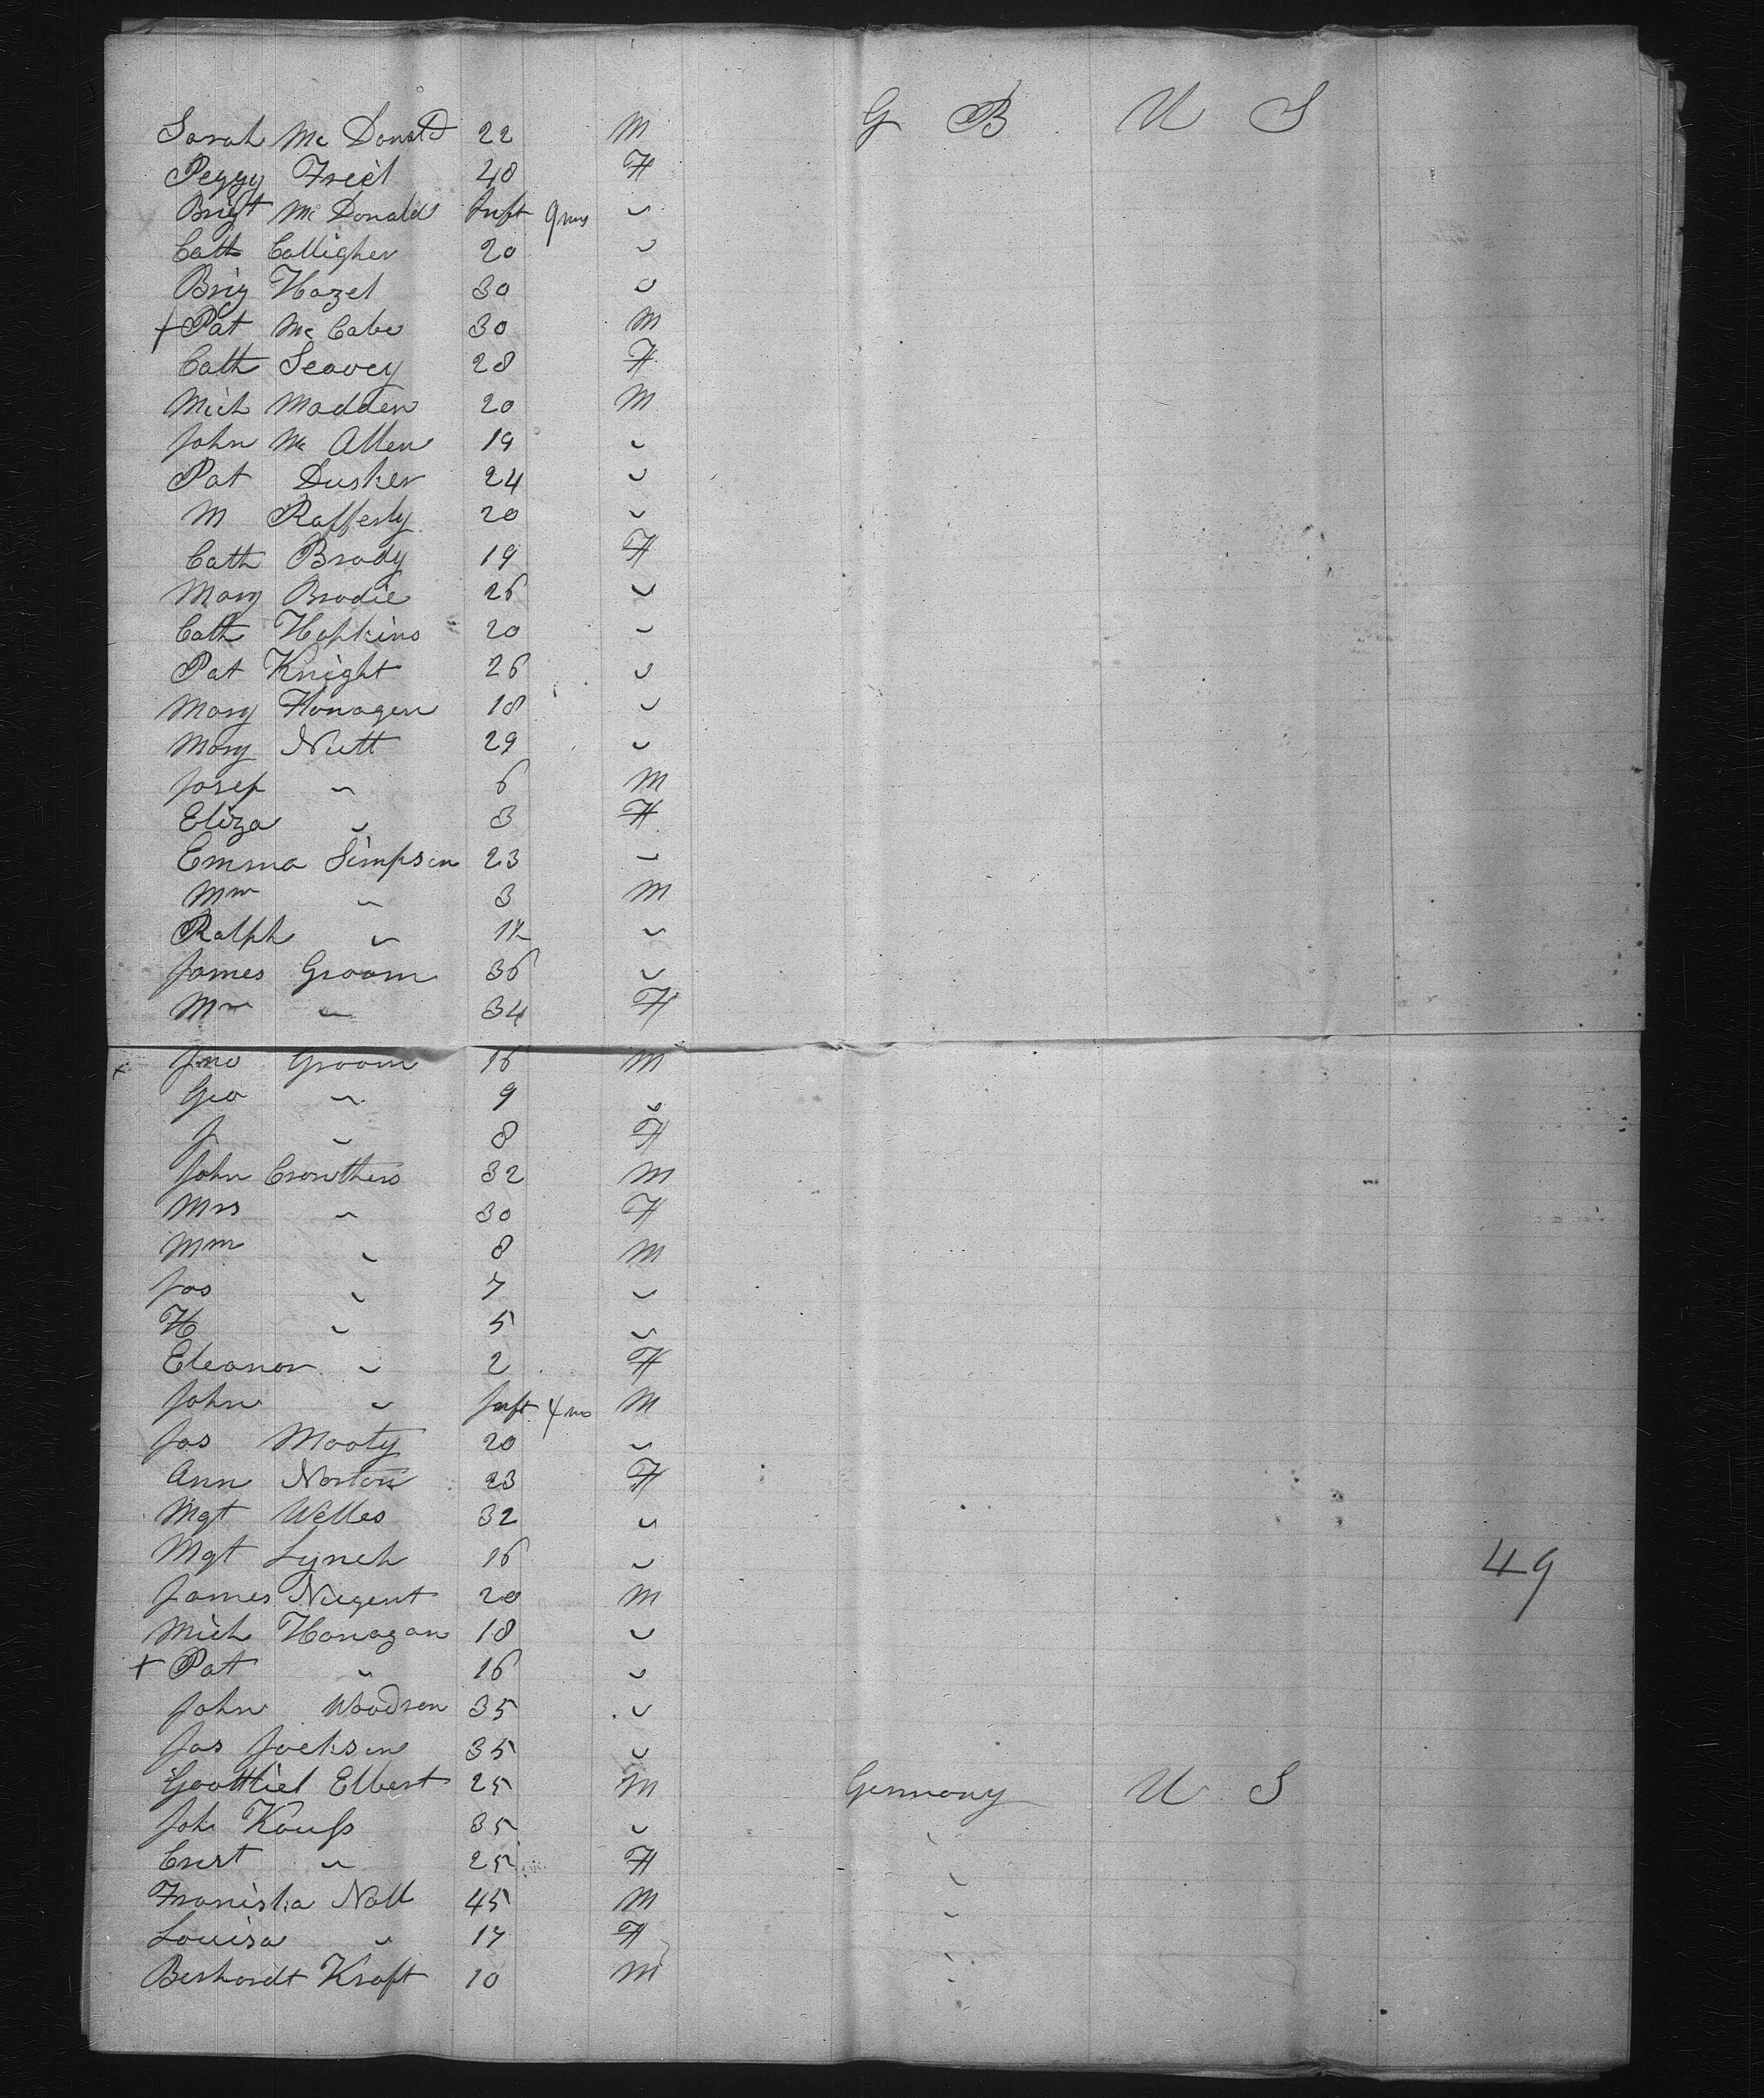 Sarah Mc Donald 22 M G B U S
Peggy Friel 40 F
Brigt Mc Donald Inft 9 mos "
Cath Calligher 20 "
Brig Hazel 30 "
+ Pat Mc Cabe 30 M
Cath Seavey 28 F
Mich Madden 20 M
John Mc Allen 19 "
Pat Dusker 24 "
M Rafferty 20 "
Cath Brady 19 F
Mary Brodie 26 "
Cath Hopkins 20 "
Pat Knight 26 "
Mary Hanagen 18 "
Mary Nutt 29 "
Josef " 6 M
Eliza " 3 F
Emma Simpson 23 "
Wm " 3 M
Ralph " "
James Groom 36 "
Mrs " 34 F
x Jno Groom 16 M
Geo " 9 "
J " 8 F
John Crowthers 32 M
Mrs " 30 F
Wm " 8 M
Jas " 7 "
H " 5 "
Eleanor " 2 F
John " Inft 4 mo M
Jas Mooty 20 "
Ann Norton 23 F
Mgt Welles 32 "
Mgt Lynch 16 "
49
James Nugent 20 M
Mich Hanagan 18 "
+ Pat " 16 "
John Woodson 35 "
Jas Jackson 35 "
Goottliel Elbert 25 M Germany U S
Joh Kauſs 35 " "
Crest " 25 F "
Franiska Noll 45 M "
Louisa " 17 F "
Berhardt Kraft 10 M "